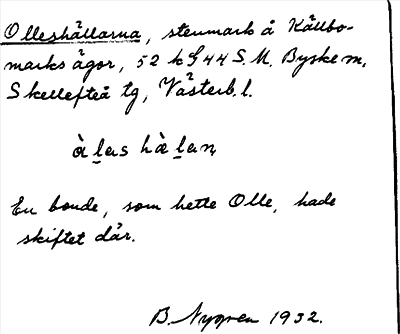 Olleshällarna, stenmark å Källbo-
marks ägor, 52 k S 44 S.M. Byske m,
Skellefteå tg, Västerb. l.
à ḷas hà ḷan̥
En bonde, som hette Olle, hade
skiftet där.
B. Nygren 1932.